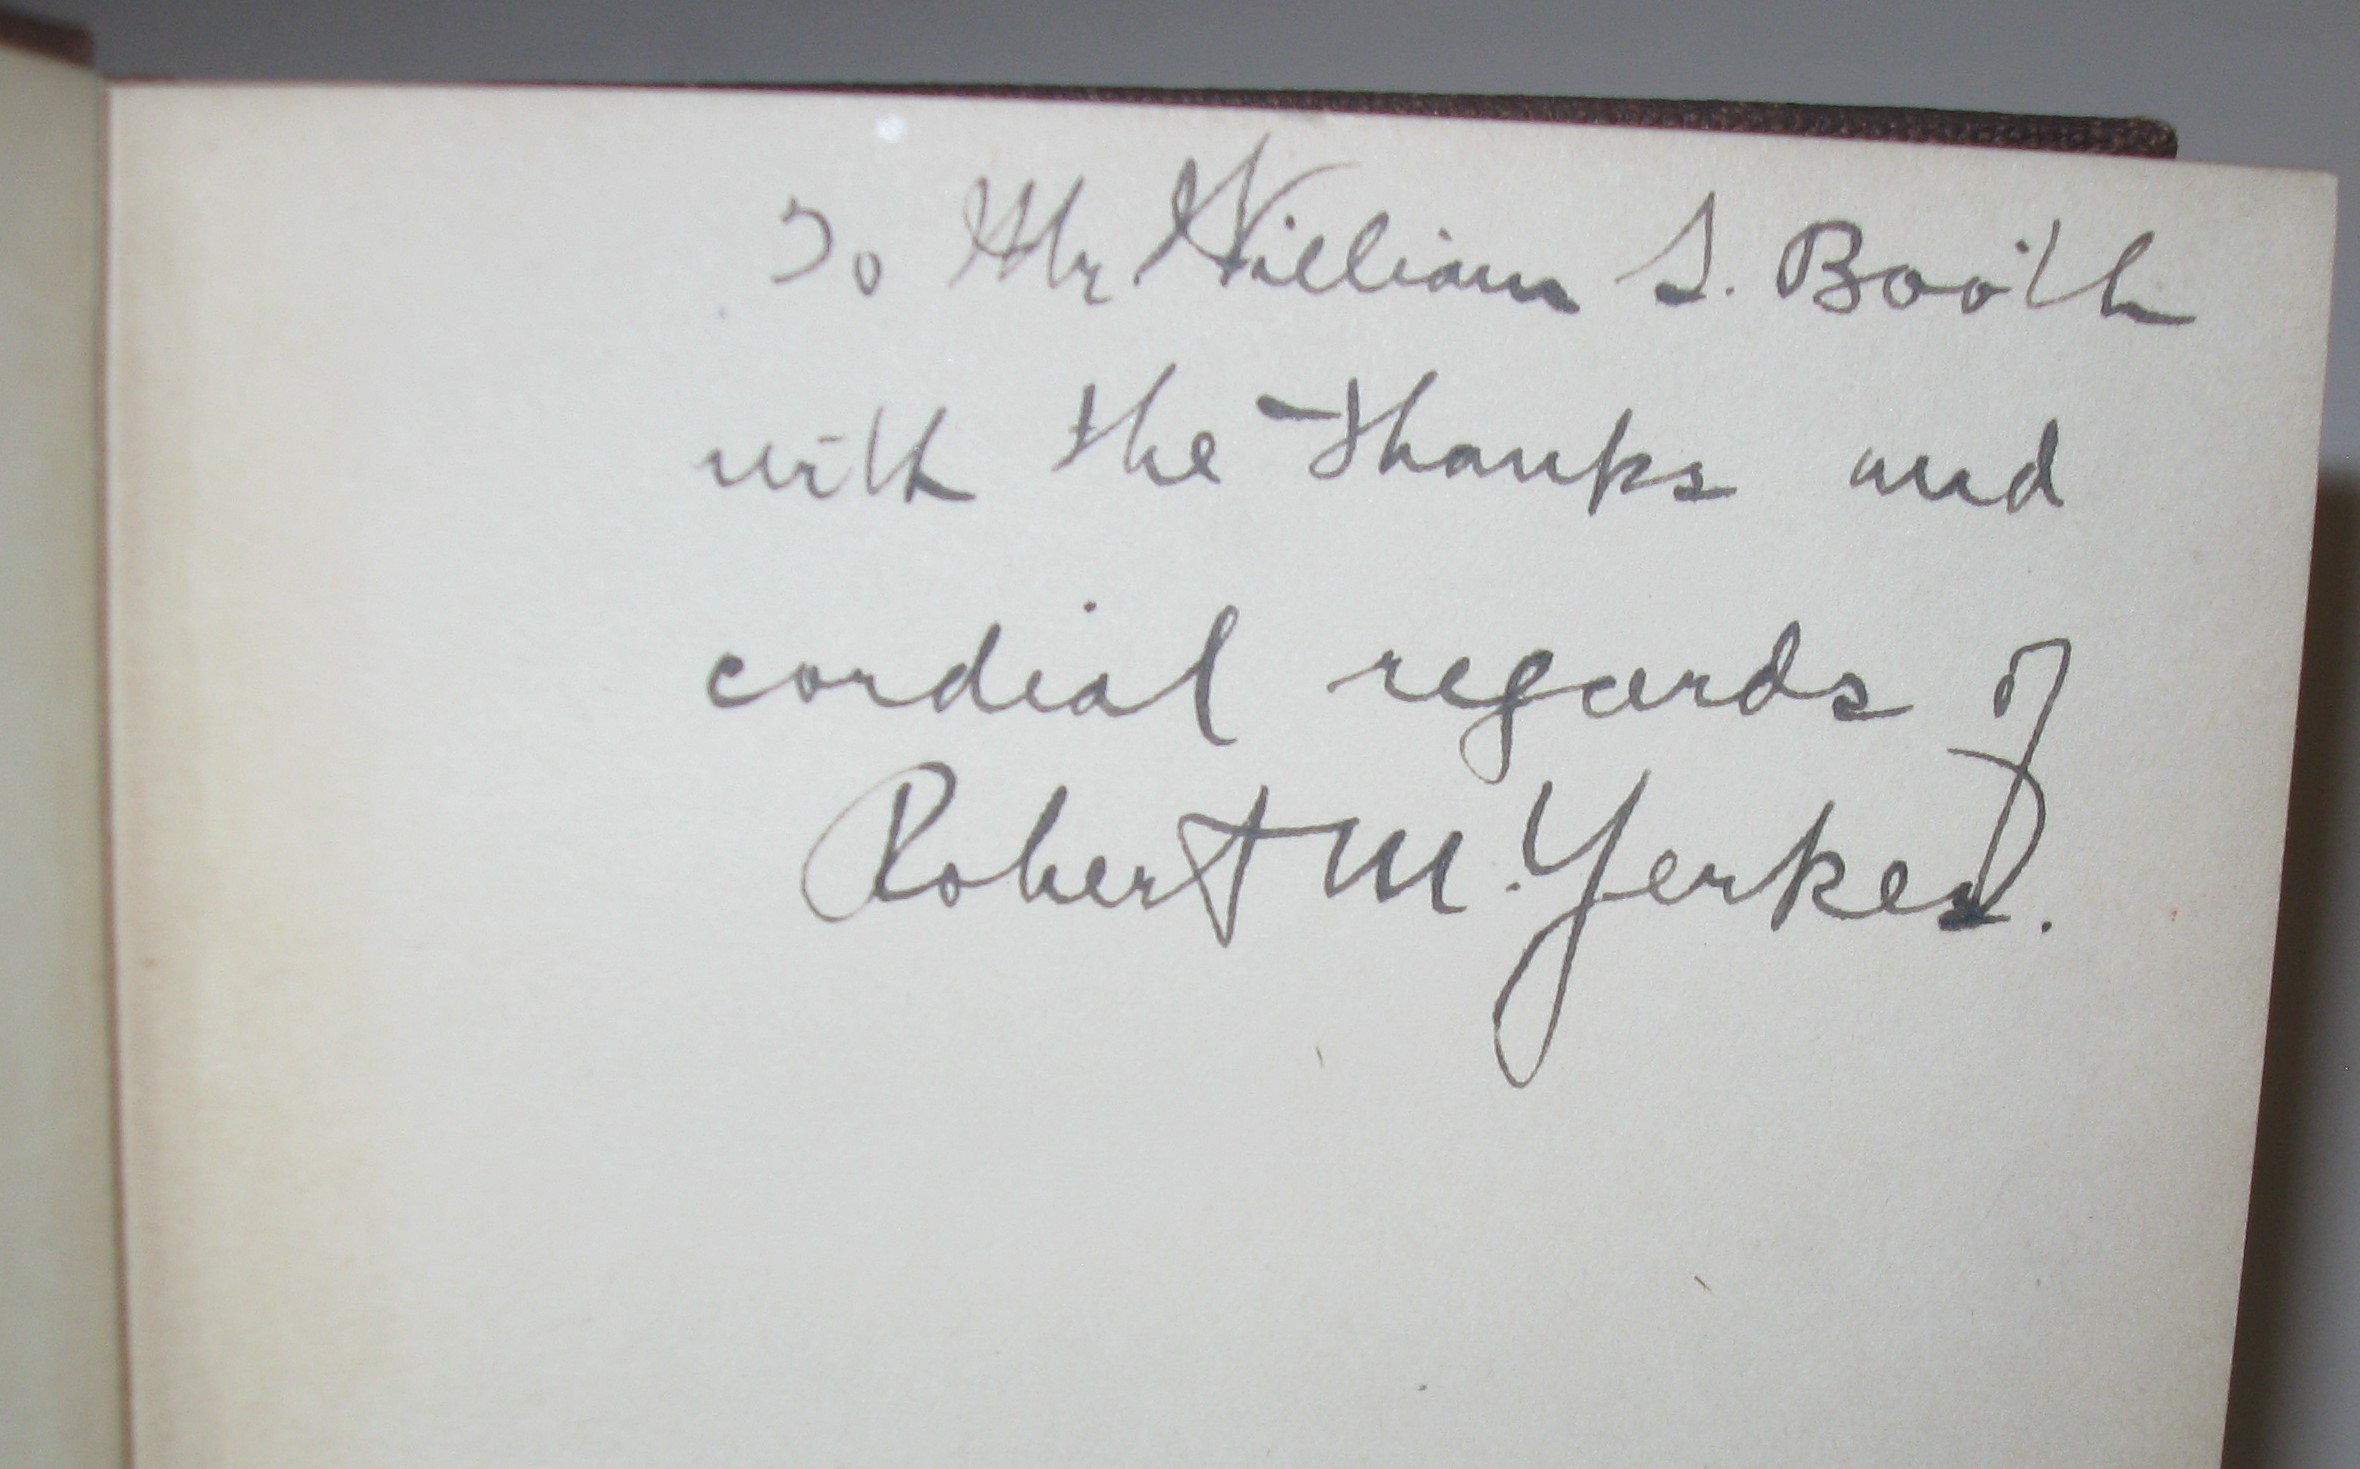 To Mr William S. Booth
with the thanks and
cordial regards of
Robert M. Yerkes.